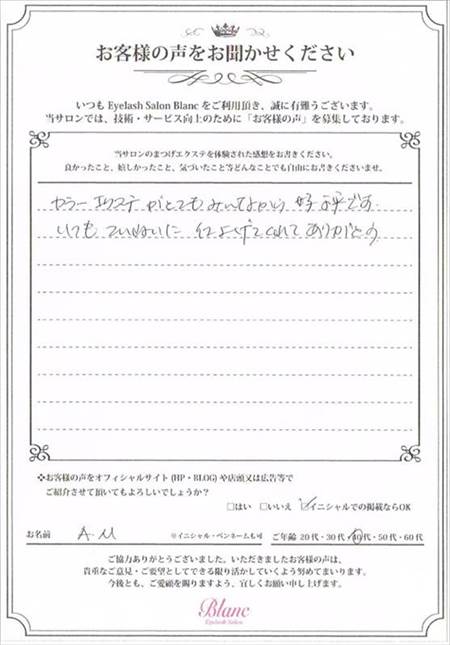 お客様の声をお聞かせください
いつも Eyelash Salon Blanc をご利用頂き、誠に有難うございます。
当サロンでは、技術・サービス向上のために「お客様の声」を募集しております。
当サロンのまつげエクステを体験された感想をお書きください。
良かったこと、嬉しかったこと、気づいたこと等どんなことでも自由にお書きくださいませ。
カラーエクステがとてもみんなから好評です
いつもていねいに仕上げてくれてありがとう
❖お客様の声をオフィシャルサイト(HP・BLOG)や店頭又は広告等で
ご紹介させて頂いてもよろしいでしょうか？
□はい □いいえ ☑イニシャルでの掲載ならOK
お名前 A.M ※イニシャル・ペンネームも可 ご年齢 20代・30代・40代・50代・60代
ご協力ありがとうございました。いただきましたお客様の声は、
貴重なご意見・ご要望としてできる限り活かしていくよう努めてまいります。
今後とも、ご愛顧を賜りますよう、宜しくお願い申し上げます。
Blanc
Eyelash Salon